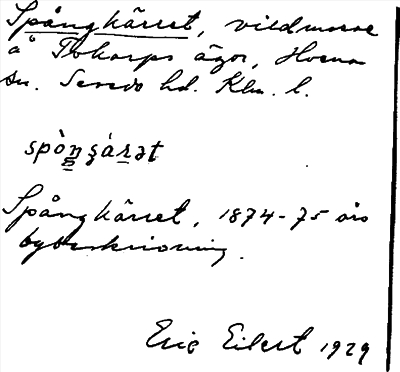 Spångkärret, vildmosse
å Torkarps ägor, Hvena
sn. Sevede hd. Klm. l.
spòŋʂáṟət
Spångkärret, 1874-75 års
bybeskrivning.
Eric Eilert 1929